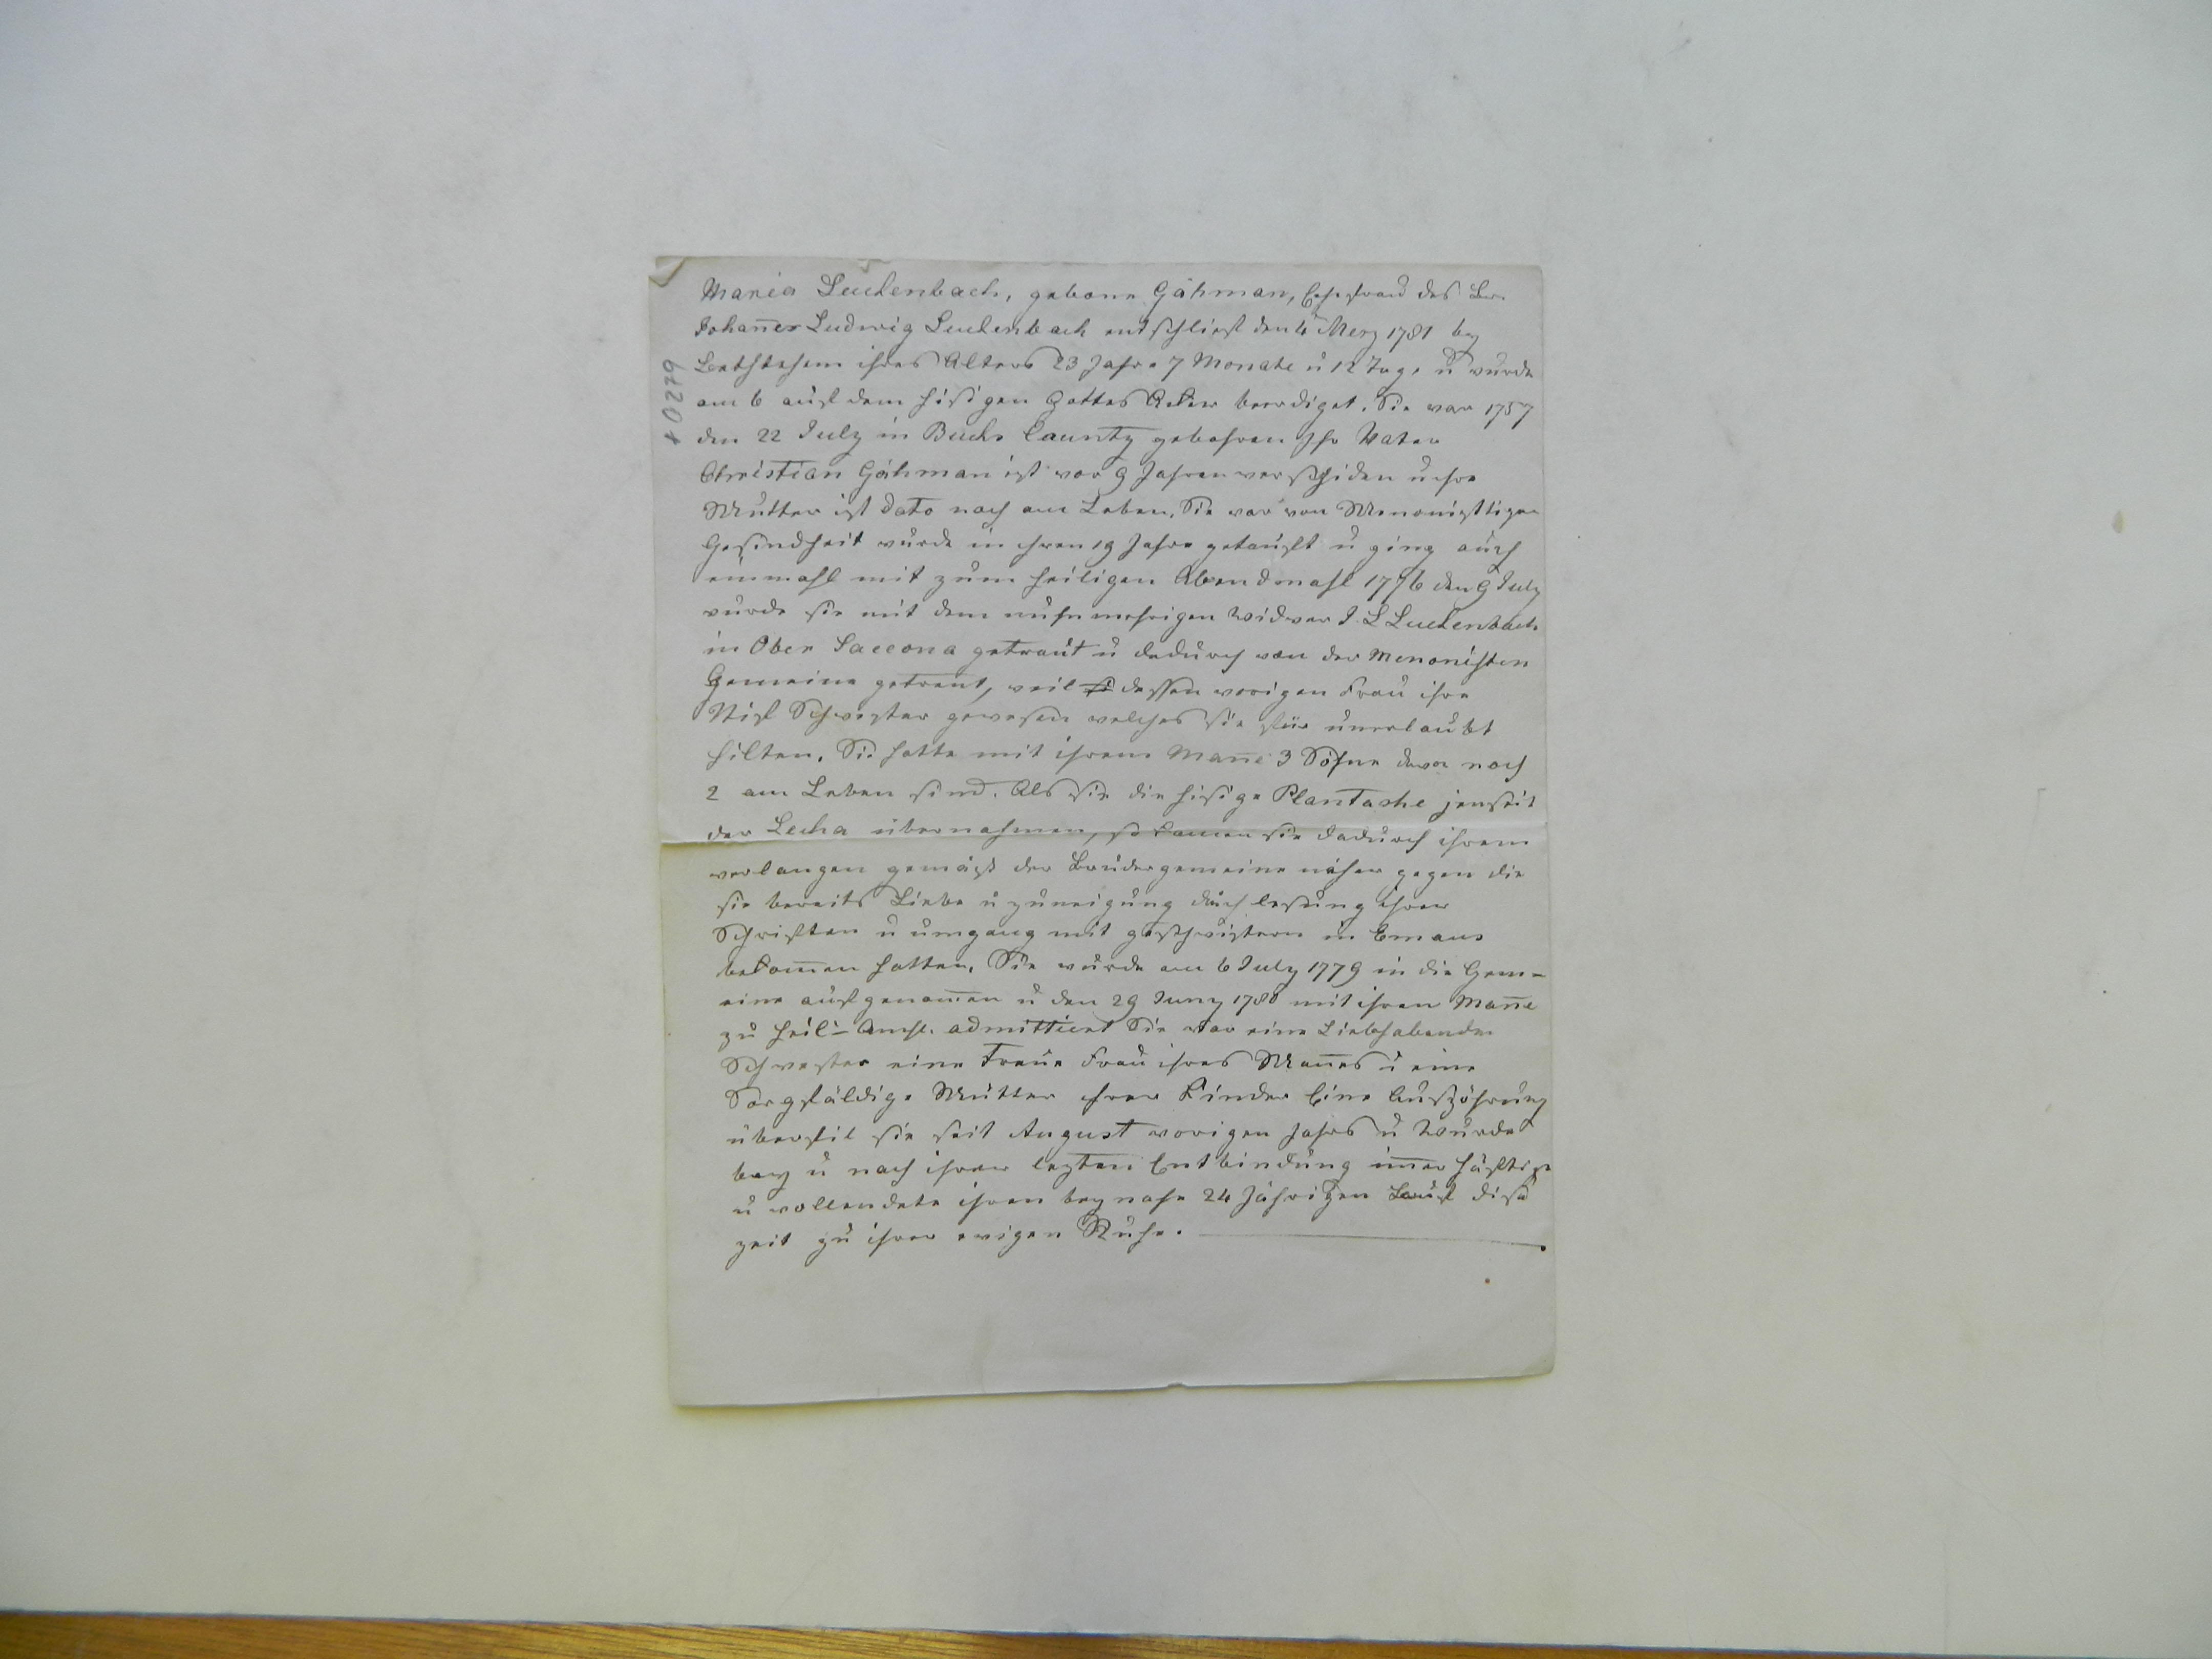 Maria Luckenbach, geborne Gähman, Ehefrau des Br.
Johañes Ludwig Luckenbach entschlief den 4 Merz 1781 bey
Bethlehem ihres Alters 23 Jahre 7 Monate ŭ 12 Tage ŭ wurde
am 6 auf dem hisigen Gottes Acker beerdiget. Sie war 1757
den 22 July in Bucks Caunty gebohren Ihr Vater
Christian Gähman ist vor 9 Jahren verschiden u ihre
Mutter ist dato noch am Leben. Sie war von Menonisttigen
Gesindheit wurde in ihren 19 Jahre getauft ŭ ging auch
einmahl mit zum heiligen Abendmahl 1776 den 9 July
wurde sie mit dem nuhnmehrigen Widwer J. L Luckenbach
in Ober Saccona getraut ŭ dadurch von der Menonisten
Gemeine getrent, weil dessen vorigen Frau ihre
Stief Schwester gewesen welches sie für unerlaubt
hilten. Sie hatte mit ihrem Mañe 3 Söhne davon noch
2 am Leben sind. Als sie die hisige Plantashe jenseit
der Lecha übernahmen, so kamen sie dadurch ihrem
verlangen gemäß der Brüdergemeine näher gegen die
sie bereits Liebe ŭ zuneigung durch lesung ihrer
Schriften ŭ umgang mit geschwistern in Emaus
bekom̄en hatten. Sie wurde am 6 July 1779 in die Gem=
eine aufgenom̄en ŭ den 29 Juny 1780 mit ihren Mañe
zu heil= Amhl. admittiert Sie war eine Liebhabende
Schwester eine Treue Frau ihres Mañes ŭ eine
Sorgfäldige Mutter ihrer Kinder Eine Auszöhrung
überfil sie seit August vorigen Jahrs ŭ Wurde
bey ŭ nach ihrer lezten Entbindung im̄er häftiger
ŭ vollendete ihren beynahe 24 Jährigen Lauf dise
zeit zu ihrer ewigen Ruhe.